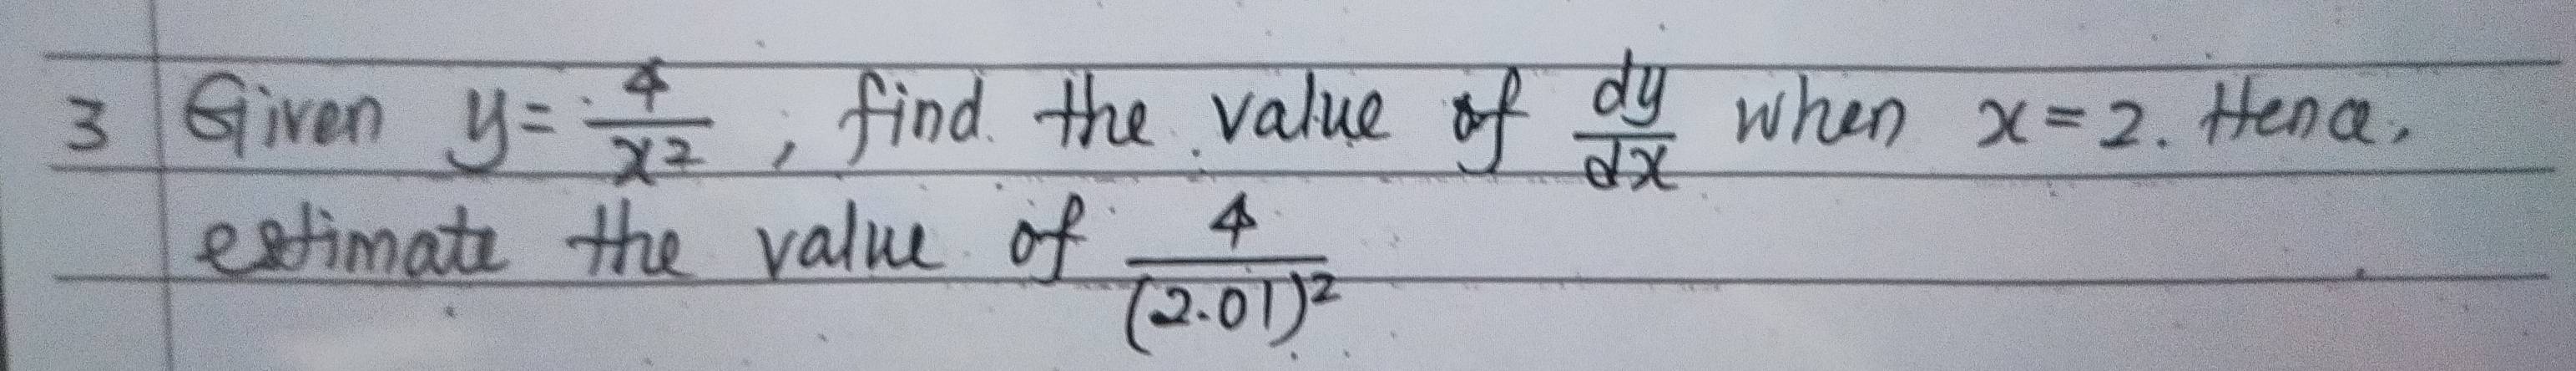 3 Given y = 4/x², find the value of dy/dx when x = 2. Hence,
estimate the value of 4/(2.01)²